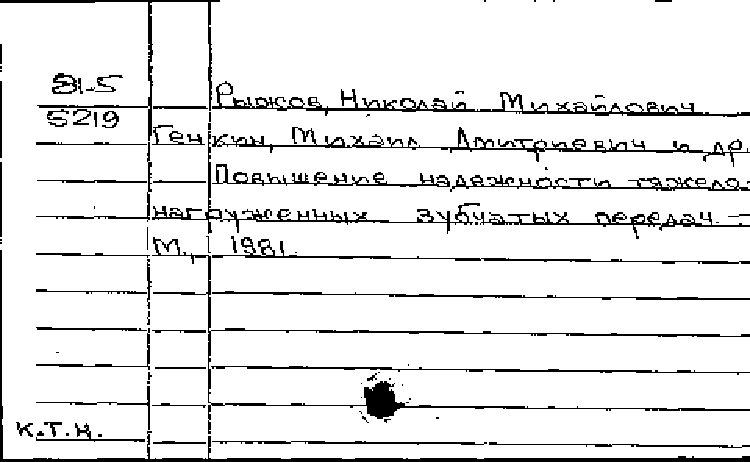 81-5
5219
Рыжов, Николай Михайлович
Генкин, Михаил Дмитриевич и др
Повышение надежности тяжело-
нагруженных зубчатых передач -
М., 1981
к.т.н.